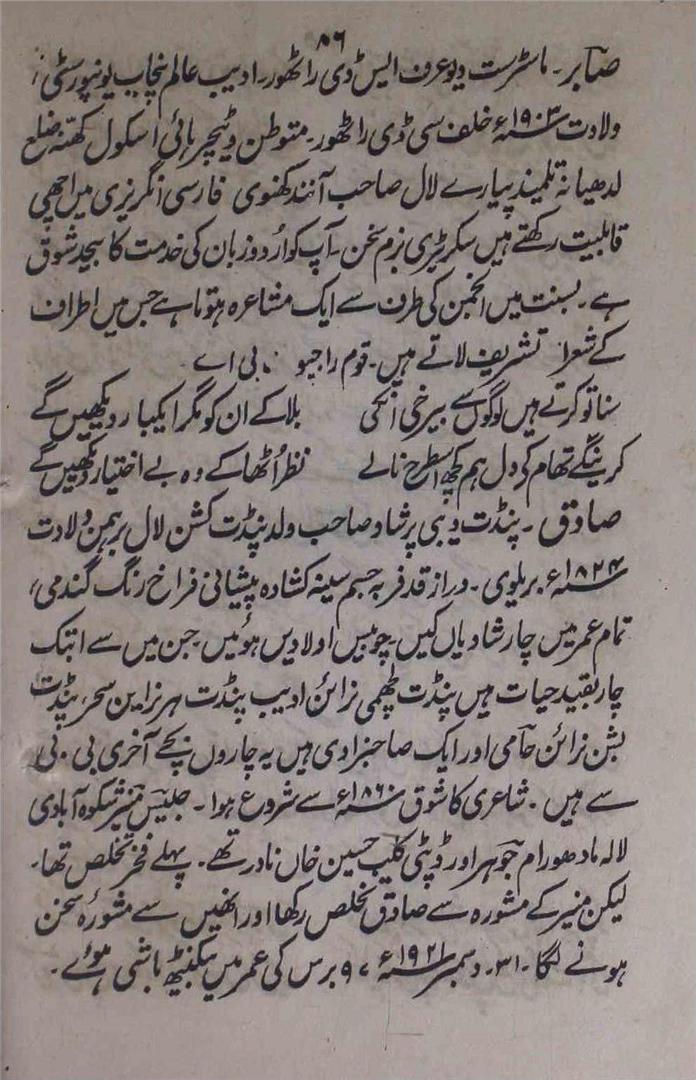 ۵۶
صابر۔ ماسٹر ست دیو عرف ایس ڈی راٹھور۔ ادیب عالم پنجاب یونیورسٹی؛
ولادت ۱۹۰۳ء خلف سی ڈی راٹھور۔ متوطن و ٹیچر ہائی اسکول کھنہ ضلع
لدھیانہ تلمیذ پیارے لال صاحب آنند لکھنوی فارسی انگریزی میں اچھی
قابلیت رکھتے ہیں سکریٹری بزم سخن۔ آپ کو اردو زبان کی خدمت کا بیحد شوق
ہے۔ بسنت میں انجمن کی طرف سے ایک مشاعرہ ہوتا ہے جس میں اطراف
کے شعرا تشریف لاتے ہیں۔ قوم راجپو بی اے
سنا تو کرتے ہیں لوگوں سے بیرخی انکی بلا کے ان کو مگر ایکبار دیکھیں گے
کرینگے تھام کر دل ہم کچھ اسطرح نالے نظر اُٹھا کے وہ بے اختیار دیکھیں گے
صادق۔ پنڈت دیبی پرشاد صاحب ولد پنڈت کشن لال برہمن ولادت
۱۸۲۴ء بریلوی۔ دراز قد فربہ جسم سینہ کشادہ پیشانی فراخ رنگ گندمی،
تمام عمر میں چار شادیاں کیں۔ چوبیس اولادیں ہوئیں۔ جن میں سے ابتک
چار بقید حیات ہیں پنڈت لچھمی نرائن ادیب پنڈت ہر نراین سحر، پنڈت
بشن نرائن حامی اور ایک صاحبزادی ہیں یہ چاروں بچے آخری بی بی
سے ہیں۔ شاعری کا شوق ۱۸۶۰ء سے شروع ہوا۔ جلیس منیر شکوہ آبادی
لالہ مادھورام جوہر اور ڈپٹی کلب حسین خاں نادر تھے۔ پہلے فخر تخلص تھا۔
لیکن منیر کے مشورہ سے صادق تخلص رکھا اور انھیں سے مشورۂ سخن
ہونے لگا۔ ۳۱۔ دسمبر ۱۹۲۱ء ۹۷ برس کی عمر میں بیکنٹھ باشی ہوئے۔